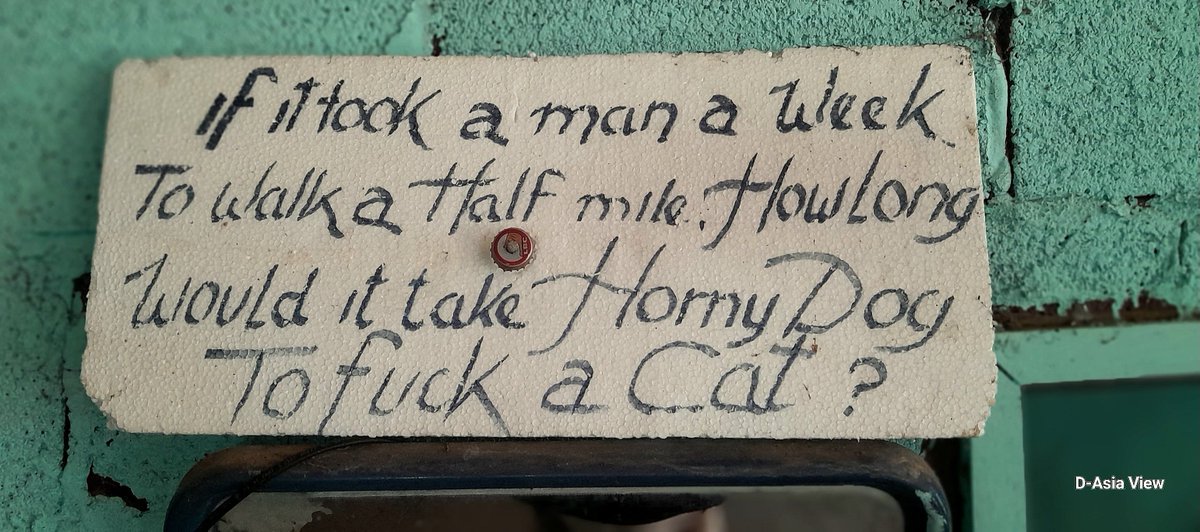 If it took a man a Week
To walk a Half mile. How Long
Would it take Horny Dog
To fuck a Cat ?
D-Asia View